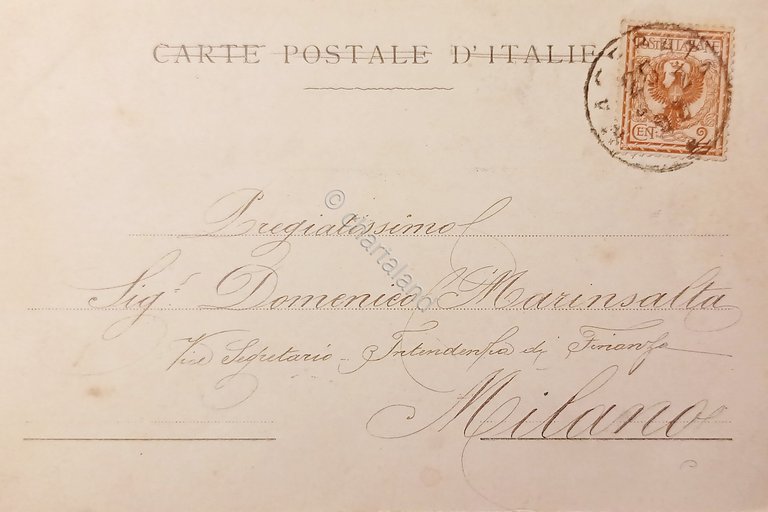 CARTE POSTALE D'ITALIE
POSTE ITALIANE
CEN. 2
Pregiatissimo
Sigr. Domenico Marinsalta
Vice Segretario - Intendenza di Finanza
Milano
© chartaland